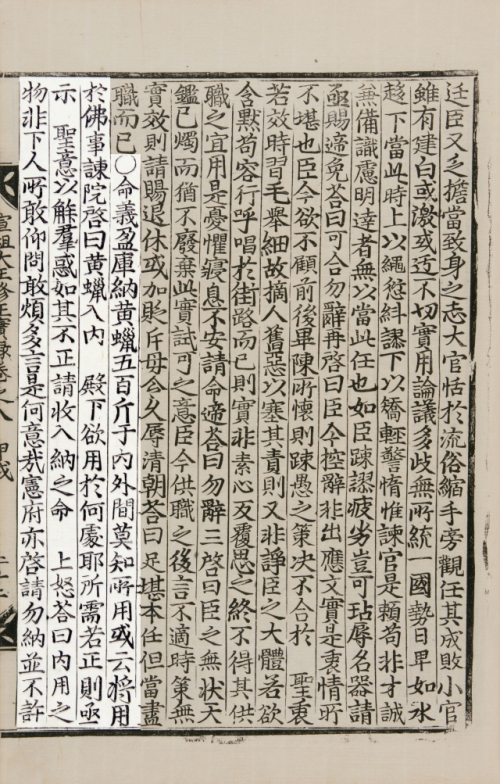 廷臣又乏擔當致身之志大官恬於流俗縮手旁觀任其成敗小官
雖有建白或激或迂不切實用論議多歧無所統一國勢日卑如水
趍下當此時上以繩愆糾謬下以矯輕警惰惟諫官是賴苟非才誠
兼備識慮明達者無以當此任也如臣踈謬疲劣豈可玷辱名器請
亟賜遞免答曰可合勿辭再啓曰臣今控辭非出應文實是衷情所
不堪也臣今欲不顧前後畢陳所懷則踈愚之策决不合於 聖衷
若效時習毛擧細故摘人舊惡以塞其責則又非諍臣之大體若欲
含默苟容行呼唱於街路而已則實非素心反覆思之終不得其供
職之宜用是憂懼寢息不安請命遞答曰勿辭三啓曰臣之無狀天
鑑已燭而猶不廢棄此實試可之意臣今供職之後言不適時策無
實效則請賜退休或加貶斥毋令久辱清朝答曰足堪本任但當盡
職而已○命義盈庫納黃蠟五百斤于內外間莫知所用或云將用
於佛事諫院啓曰黃蠟入內 殿下欲用於何處耶所需若正則亟
示 聖意以解羣惑如其不正請收入納之命 上怒答曰內用之
物非下人所敢仰問敢煩多言是何意哉憲府亦啓請勿納並不許
宣祖大王修正實錄卷之八 甲戌